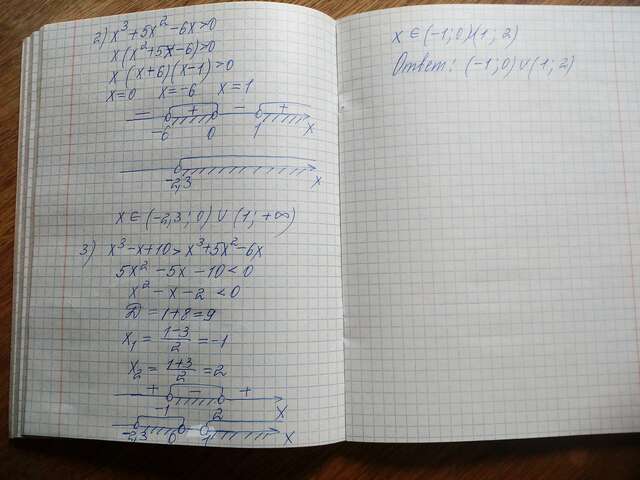 2) x³ + 5x² - 6x > 0
x(x² + 5x - 6) > 0
x(x+6)(x-1) > 0
x=0 x=-6 x=1
- + - +
-6 0 1 x
-2,3 x
x ∈ (-2,3; 0) ∪ (1; +∞)
3) x³ - x + 10 > x³ + 5x² - 6x
5x² - 5x - 10 < 0
x² - x - 2 < 0
D = 1 + 8 = 9
x₁ = (1-3)/2 = -1
x₂ = (1+3)/2 = 2
+ - +
-1 2 x
-2,3 0 1 x
x ∈ (-1; 0) (1; 2)
Ответ: (-1; 0) ∪ (1; 2)